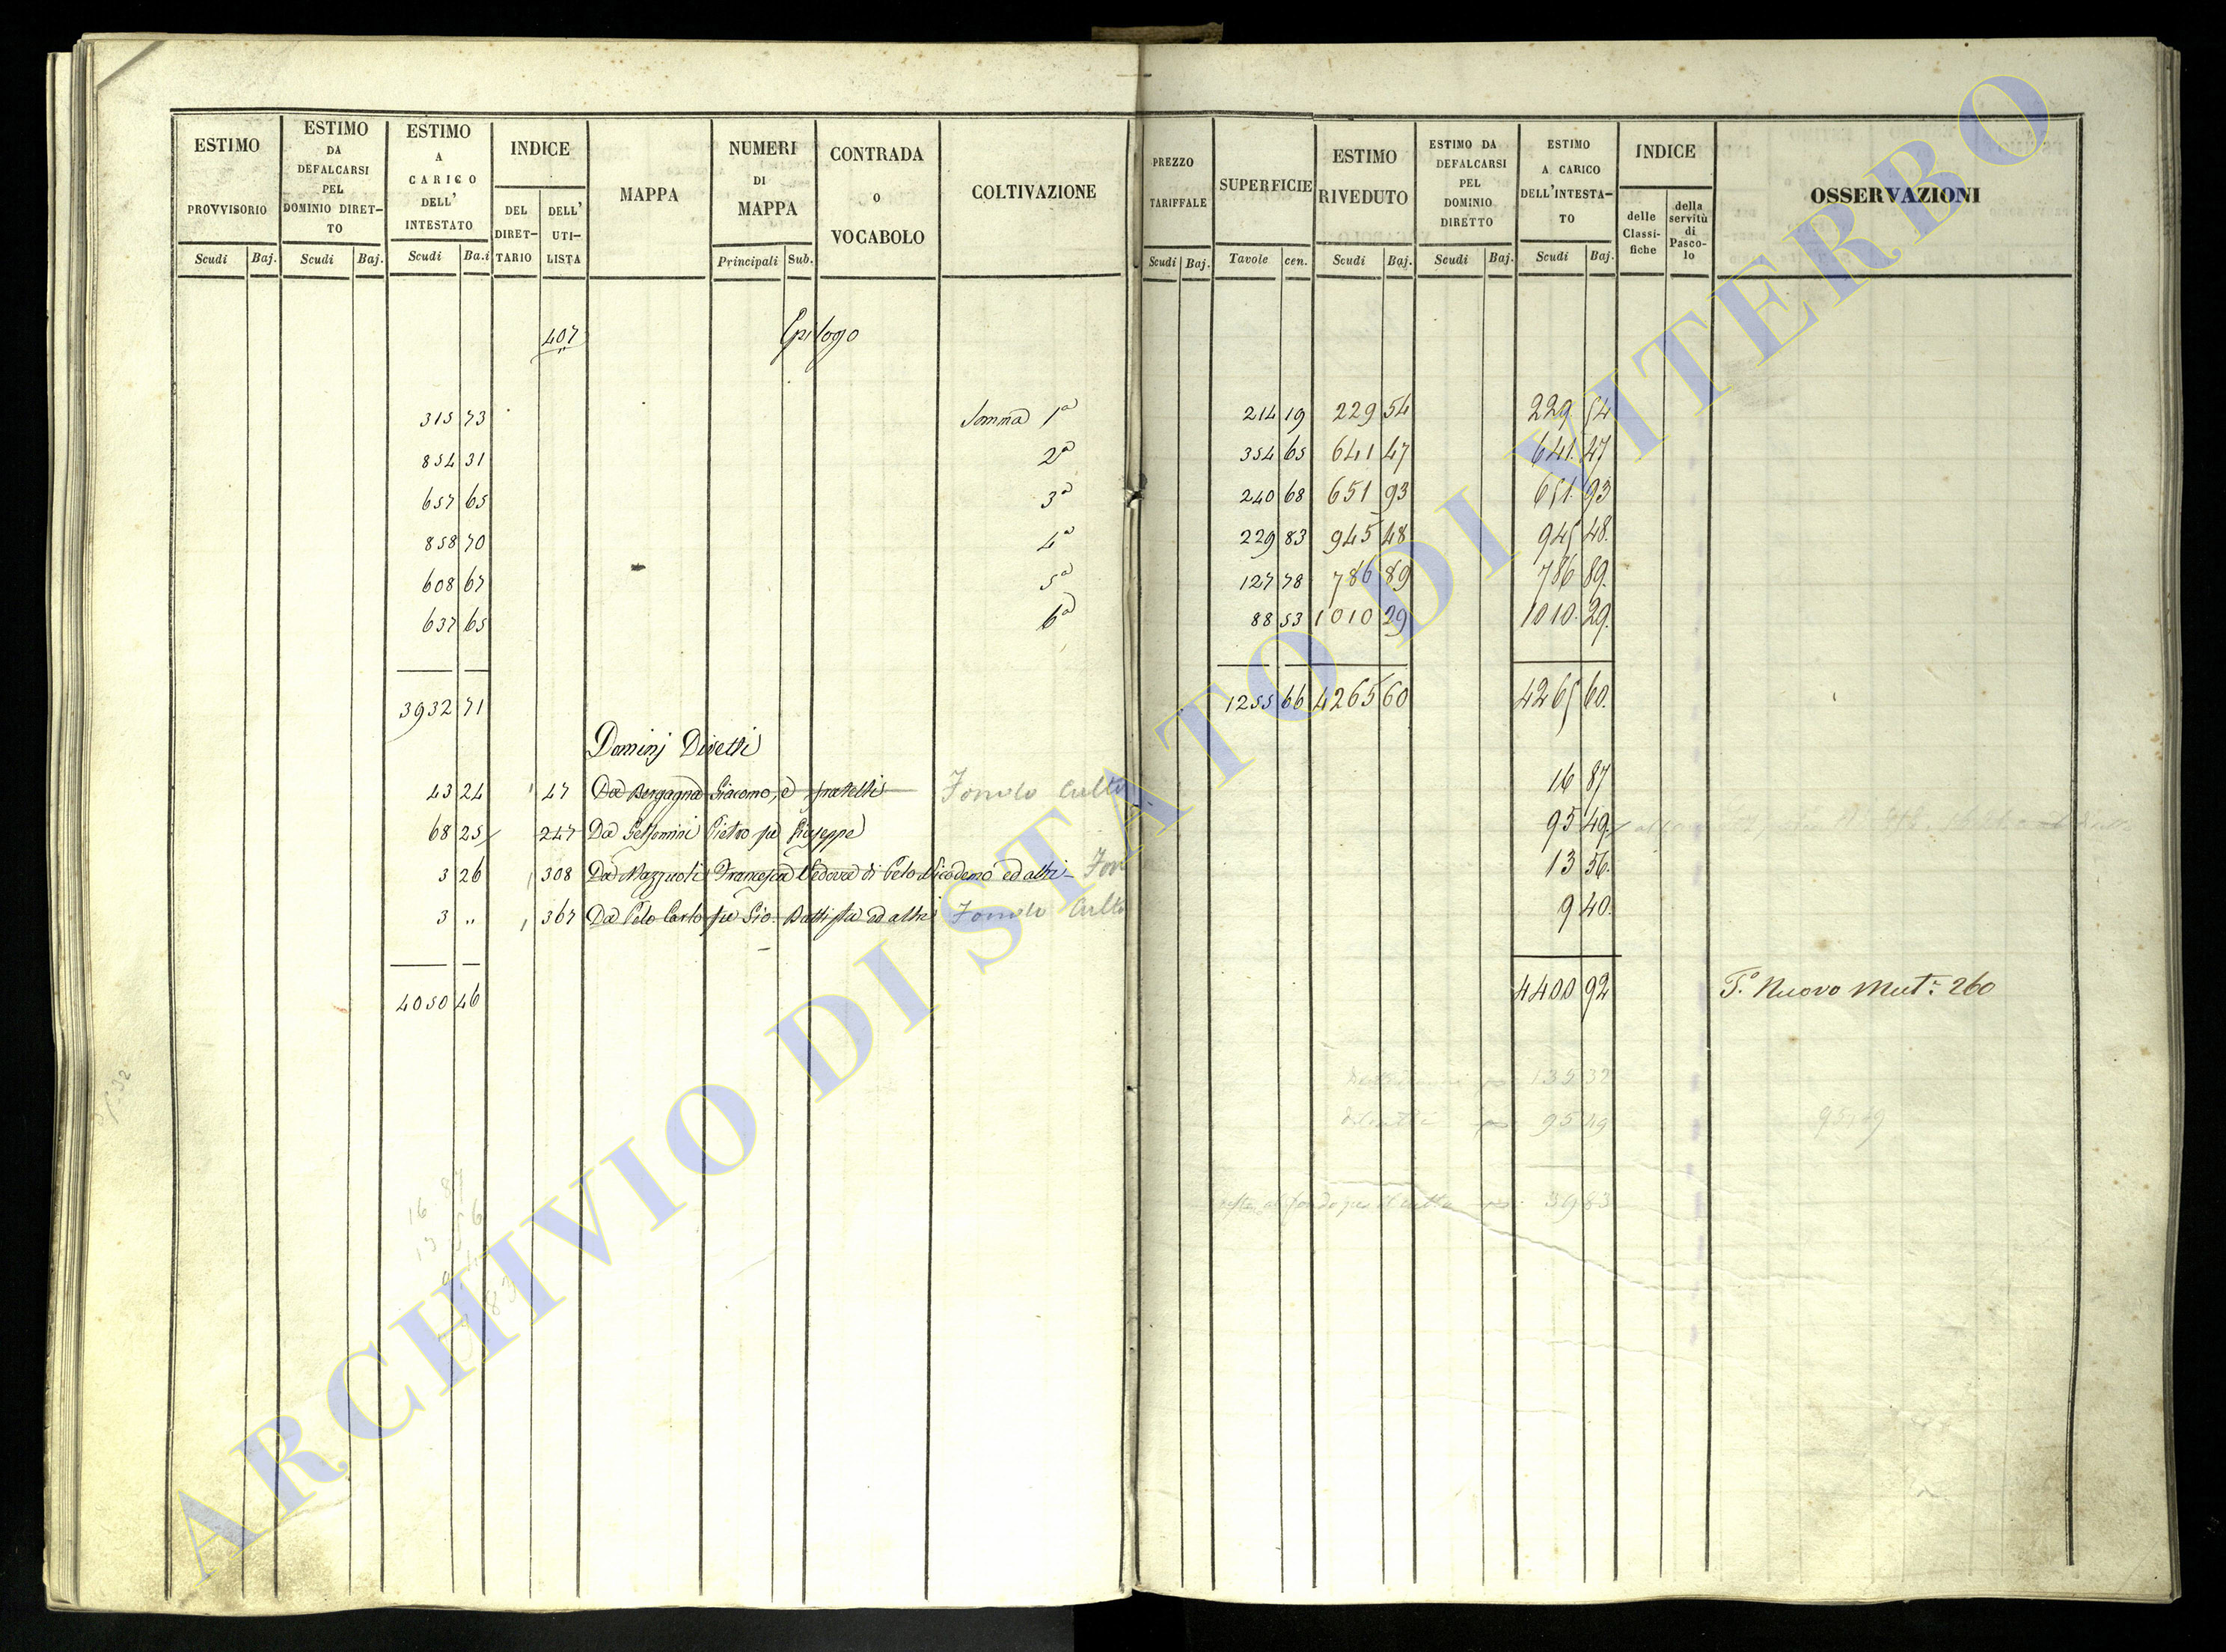 ESTIMO PROVVISORIO
ESTIMO DA DEFALCARSI PEL DOMINIO DIRET-TO
ESTIMO A CARICO DELL' INTESTATO
INDICE
DEL DIRET-TARIO
DELL' UTI-LISTA
MAPPA
NUMERI DI MAPPA
CONTRADA o VOCABOLO
COLTIVAZIONE
PREZZO TARIFFALE
SUPERFICIE
ESTIMO RIVEDUTO
ESTIMO DA DEFALCARSI PEL DOMINIO DIRETTO
ESTIMO A CARICO DELL'INTESTA-TO
INDICE
delle Classi-fiche
della servitù di Pasco-lo
OSSERVAZIONI
Scudi Baj. Scudi Baj. Scudi Ba.i Principali Sub. Scudi Baj. Tavole cen. Scudi Baj. Scudi Baj. Scudi Baj.
407 Epilogo
315 73 Somma 1a 214 19 229 54 229 54
854 31 2a 354 65 641 47 641. 47
657 65 3a 240 68 651 93 651. 93
858 70 4a 229 83 945 48 945 48.
608 67 5a 127 78 786 89 786 89.
637 65 6a 88 53 1010 29 1010. 29.
3932 71 1255 66 4265 60 4265 60.
Dominj Diretti
43 24 47 Da Bergagna Giacomo, e fratelli Fondo Culto 16 87
68 25 247 Da Gelsomini Pietro fu Giuseppe 95 49.
3 26 308 Da Mazzuoli Francesca Vedova di Pelo Nicodemo ed altri 13 56.
3 „ 367 Da Pelo Carlo fu Gio. Battista ed altri Fondo Culto 9 40.
4050 46 4400 92 T.o Nuovo Mut.e 260
135 32
95 49 95,49
resta al fondo per il culto 39 83
16 87
ARCHIVIO DI STATO DI VITERBO